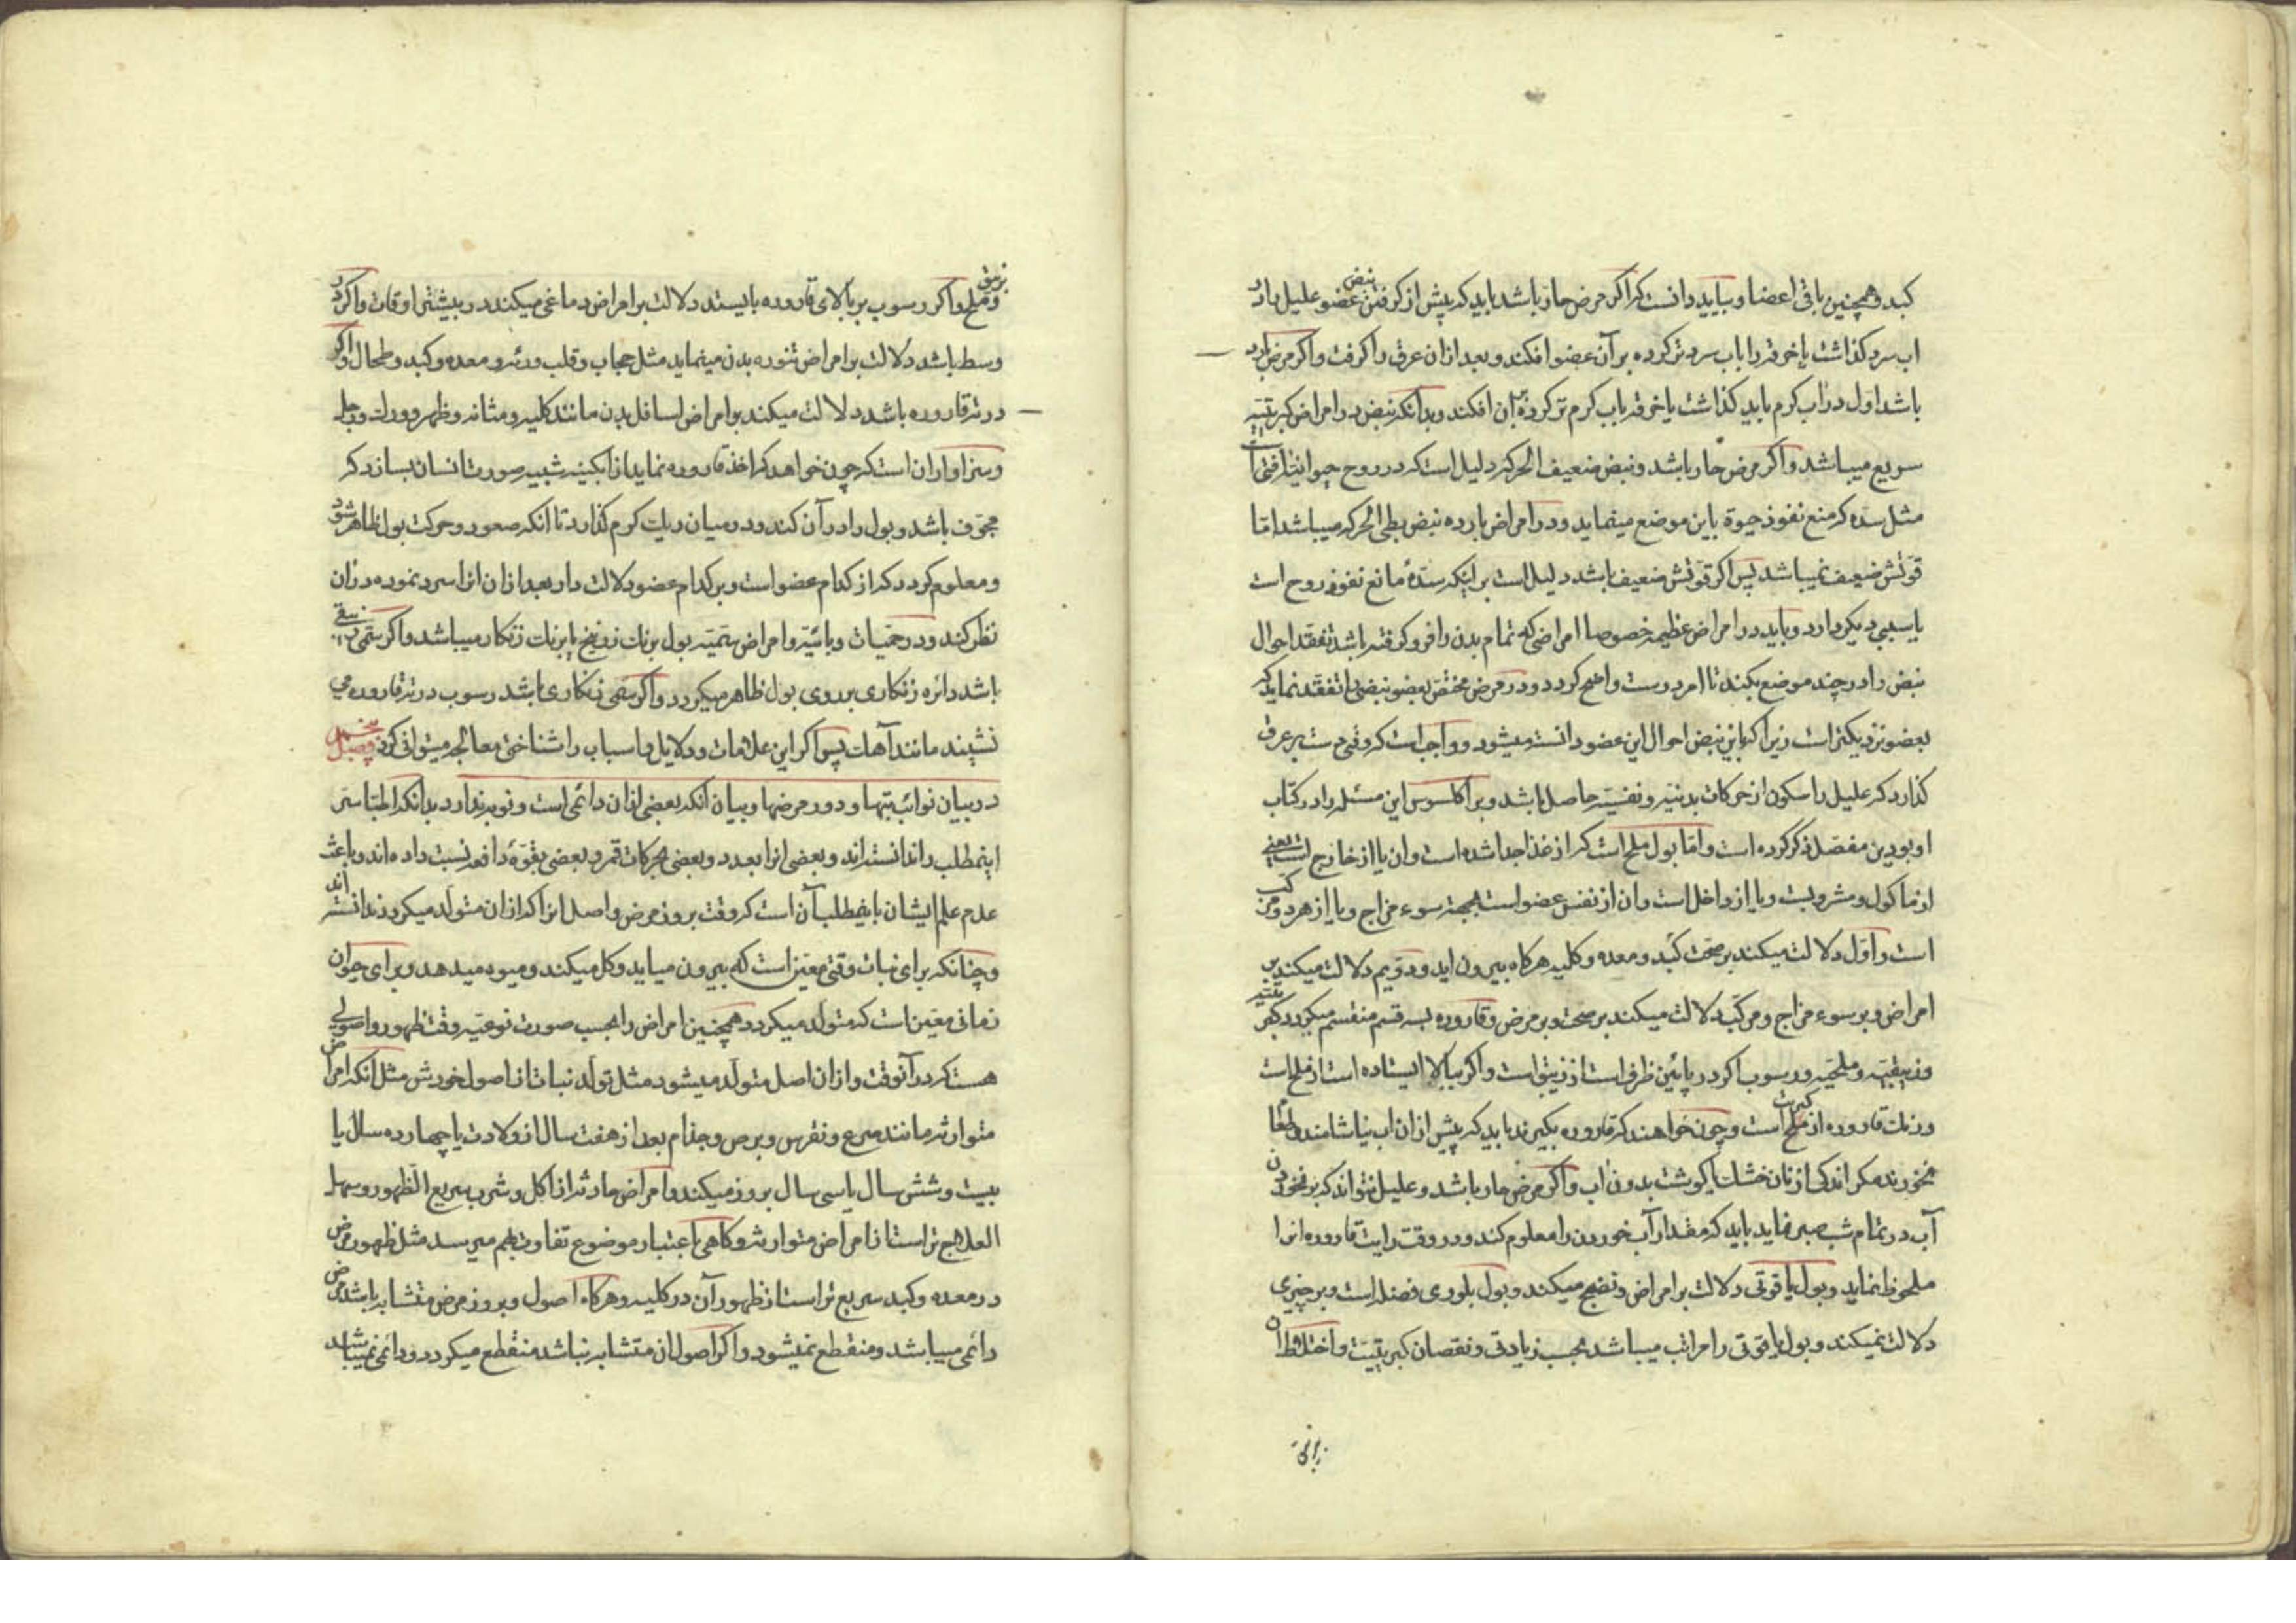 کبد و همچنین باقی اعضا و بباید دانست که اگر مرض حار باشد باید که پیش از کرفتن نبض عضو علیل را در
اب سرد کذاشت یا خرقه را باب سرد تر کرده بر آن عضو افکند و بعد از ان عرق را کرفت و اگر مرض بارد
باشد اول در اب کرم باید کذاشت یا خرقه باب کرم تر کرده بر ان افکند و بدانکه نبض در امراض کبریتیه
سریع میباشد و اگر مرض حار باشد و نبض ضعیف الحرکه دلیل است که در روح حیوانیه افتی است
مثل سده که منع نفوذ حیوة باین موضع مینماید و در امراض بارده نبض بطی الحرکه میباشد امّا
قوتش ضعیف نمیباشد پس اگر قوتش ضعیف باشد دلیل است بر اینکه سدهٔ مانع نفوذ روح است
یا سببی دیکر دارد و باید در امراض عظیمه خصوصا امراضی که تمام بدن را فرو کرفته باشد تفقد احوال
نبض را در چند موضع بکند تا امر درست واضح کردد و در مرض مختصّ بعضو نبضی را تفقد نماید که
بعضو نزدیکتر است زیرا که باین نبض احوال این عضو دانسته میشود و واجب است که وقتی دست بر عرق
کذارد که علیل را سکون از حرکات بدنیه و نفسیّه حاصل باشد و براکلسوس این مسئله را در کتاب
او بودین مفصّل ذکر کرده است و امّا بول ملح است که از غذا جدا شده است و ان یا از خارج است یعنی
از ماکول و مشروبست و یا از داخل است و ان از نفس عضو است بجهة سوء مزاج و یا از هر دو مرکب
است و اوّل دلالت میکند بر صحّت کبد و معده و کلیه هرکاه بیرون اید و دویم دلالت میکند بر
امراض و بر سوء مزاج و مرکّب دلالت میکند بر صحّت و بر مرض و قاروره بسه قسم منقسم میکردد کبریتیه
و زیبقیّه و ملحیّه و رسوب اگر در پائین ظرف است از زیبق است و اگر ببالا ایستاده است از ملح است
و رنك قاروره از ملح کبریت است و چون خواهند که قاروره بکیرند باید که پیش از ان اب نیاشامند و طعام
نخورند مکر اندکی از نان خشك یا کوشت بدون اب و اگر مرض حار باشد و علیل نتواند که بر نخوردن
آب در تمام شب صبر نماید باید که مقدار آب خوردن را معلوم کند و در وقت رایت قاروره انرا
ملحوظ نماید و بول یاقوتی دلالت بر امراض و نضج میکند و بول بلوری فضله است و بر چیزی
دلالت نمیکند و بول یاقوتی را مراتب میباشد بحسب زیادتی و نقصان کبریتیت و اختلاط ان
و ملح زیبق و اگر رسوب بر بالای قاروره بایستد دلالت بر امراض دماغی میکند در بیشتر اوقات و اگر در
وسط باشد دلالت بر امراض تنوره بدن مینماید مثل حجاب و قلب و ریه و معده و کبد و طحال و اگر
در ته قاروره باشد دلالت میکند بر امراض اسافل بدن مانند کلیه و مثانه و ظهر و ورك و رجل
و سزاوار ان است که چون خواهد که اخذ قاروره نماید از ابکینه شبیه صورت انسان بسازد که
مجوّف باشد و بول را در آن کند و در میان ریك کرم کذارد تا انکه صعود و حرکت بول ظاهر شود
و معلوم کردد که از کدام عضو است و بر کدام عضو دلالت دارد بعد از ان انرا سرد نموده در ان
نظر کند و در حمیّات وبائیّه و امراض سمّیّه بول برنك زرنیخ یا برنك زنکار میباشد و اگر سمّی زیبقی
باشد دائره زنکاری بر روی بول ظاهر میکردد و اگر سمی زنکاری باشد رسوب در ته قاروره می
نشیند مانند آهك پس اگر این علامات و دلایل و اسباب را شناختی معالجه میتوانی کرد فصل پنجم
در بیان نوائب تبها و دور مرضها و بیان انکه بعضی از ان دائمی است و نوبه ندارد بدانکه اطبّا سر
اینمطلب را ندانسته اند و بعضی انرا بعدد و بعضی بحرکات قمر و بعضی بقوّهٔ دافعه نسبت داده اند و باعث
عدم علم ایشان باینمطلب آن است که وقت بروز مرض و اصل انرا که از ان متولّد میکردد ندانسته اند
و چنانکه برای نبات وقتی معیّن است که بیرون میاید و کل میکند و میوه میدهد و برای حیوان
زمانی معیّن است که متولّد میکردد همچنین امراض را بحسب صورت نوعیّه وقت ظهور و اصولی
هست که در آنوقت و از ان اصل متولّد میشود مثل تولّد نبات از اصول خودش مثل آنکه امراض
متوارثه مانند صرع و نقرس و برص و جذام بعد از هفت سال از ولادت یا چهارده سال یا
بیست و شش سال یا سی سال بروز میکند و امراض حادثه از اکل و شرب سریع الظهور و سهل
العلاج تر است از امراض متوارثه و کاهی باعتبار موضوع تفاوت بهم میرسد مثل ظهور مرض
در معده و کبد سریع تر است از ظهور آن در کلیه و هرکاه اصول و بروز مرض متشابه باشد مرض
دائمی میباشد و منقطع نمیشود و اگر اصول ان متشابه نباشد منقطع میکردد و دائمی نمیباشد